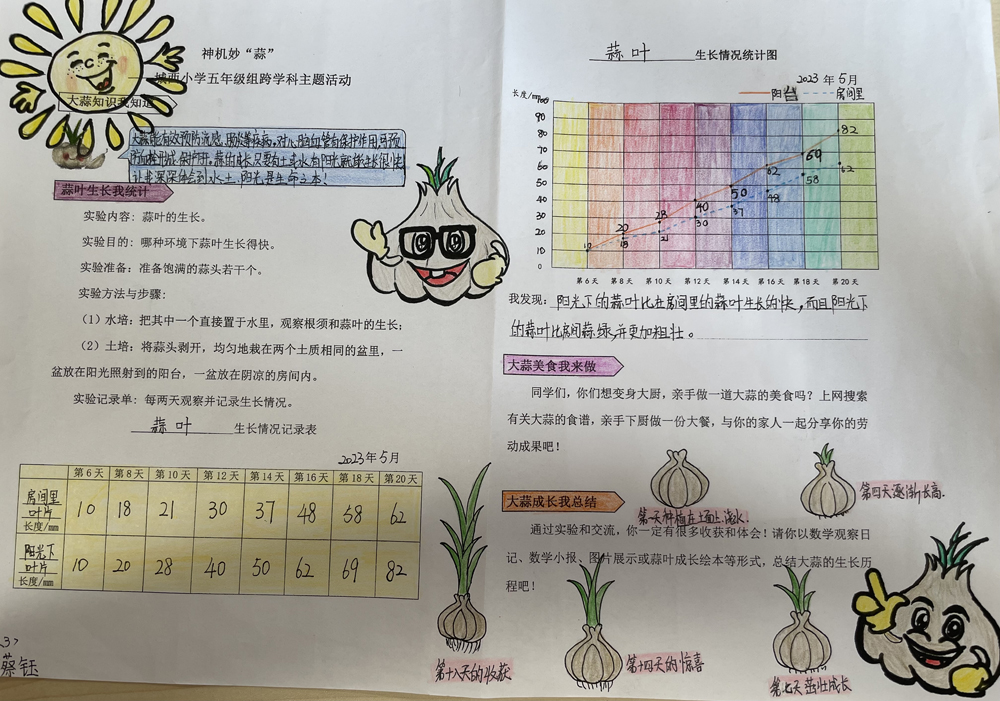 神机妙“蒜”
城西小学五年级组跨学科主题活动
大蒜知识我知道
大蒜能有效预防流感、肠炎等疾病，对心脑血管有保护作用可预
防血栓形成 保护肝。蒜的成长只要有土或水有阳光就能生长很快
让我深深体会到水、土、阳光是生命之本！
蒜叶生长我统计
实验内容：蒜叶的生长。
实验目的：哪种环境下蒜叶生长得快。
实验准备：准备饱满的蒜头若干个。
实验方法与步骤：
（1）水培：把其中一个直接置于水里，观察根须和蒜叶的生长；
（2）土培：将蒜头剥开，均匀地栽在两个土质相同的盆里，一
盆放在阳光照射到的阳台，一盆放在阴凉的房间内。
实验记录单：每两天观察并记录生长情况。
蒜叶 生长情况记录表
2023年5月
第6天 第8天 第10天 第12天 第14天 第16天 第18天 第20天
房间里
叶片
长度/mm
10 18 21 30 37 48 58 62
阳光下
叶片
长度/mm
10 20 28 40 50 62 69 82
蔡钰
蒜叶 生长情况统计图
2023年5月
长度/mm
阳台 房间里
100
90
80
70
60
50
40
30
20
10
0
10 20 28 40 50 62 69 82
18 21 30 37 48 58 62
第6天 第8天 第10天 第12天 第14天 第16天 第18天 第20天
我发现：阳光下的蒜叶比在房间里的蒜叶生长的快，而且阳光下
的蒜叶比房间蒜绿，并更加粗壮。
大蒜美食我来做
同学们，你们想变身大厨，亲手做一道大蒜的美食吗？上网搜索
有关大蒜的食谱，亲手下厨做一份大餐，与你的家人一起分享你的劳
动成果吧！
大蒜成长我总结
第一天种植在土面上，浇水.
第四天逐渐长高.
通过实验和交流，你一定有很多收获和体会！请你以数学观察日
记、数学小报、图片展示或蒜叶成长绘本等形式，总结大蒜的生长历
程吧！
第十八天的收获
第十四天的惊喜
第七天茁壮成长